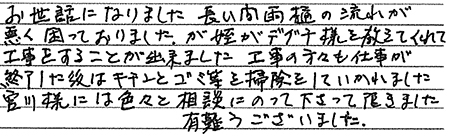 お世話になりました 長い間雨樋の流れが
悪く困っておりました.が姪がデグチ様を教えてくれて
工事をすることが出来ました 工事の方々も仕事が
終了した後はキチンとゴミ等を掃除をしていかれました
宮川様には色々と相談にのって下さって頂きました
有難うございました.